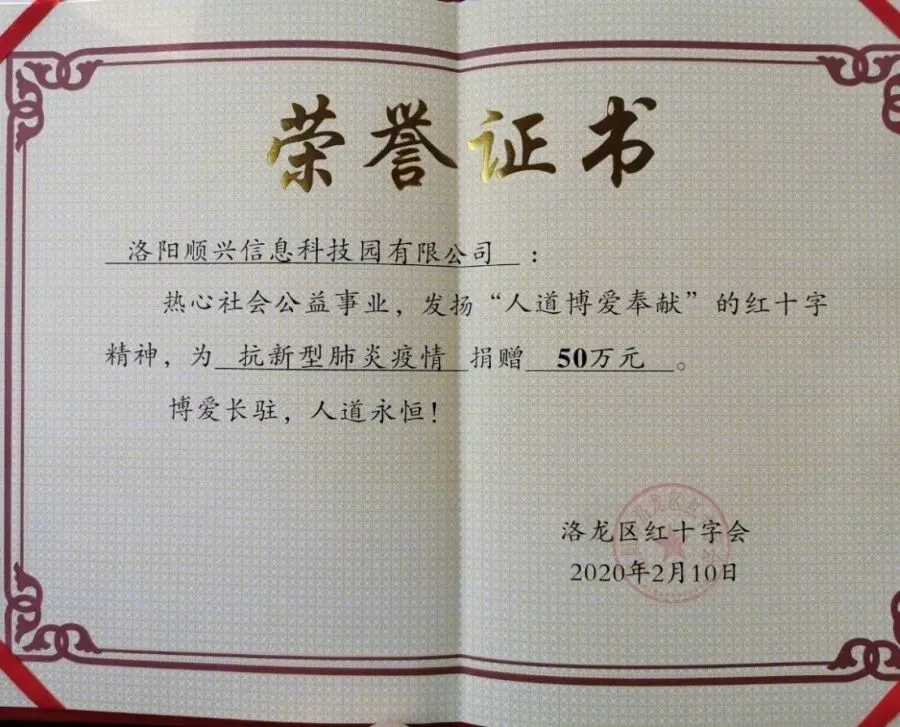 荣誉证书
洛阳顺兴信息科技园有限公司：
热心社会公益事业，发扬“人道博爱奉献”的红十字
精神，为 抗新型肺炎疫情 捐赠 50万元。
博爱长驻，人道永恒！
洛龙区红十字会
2020年2月10日